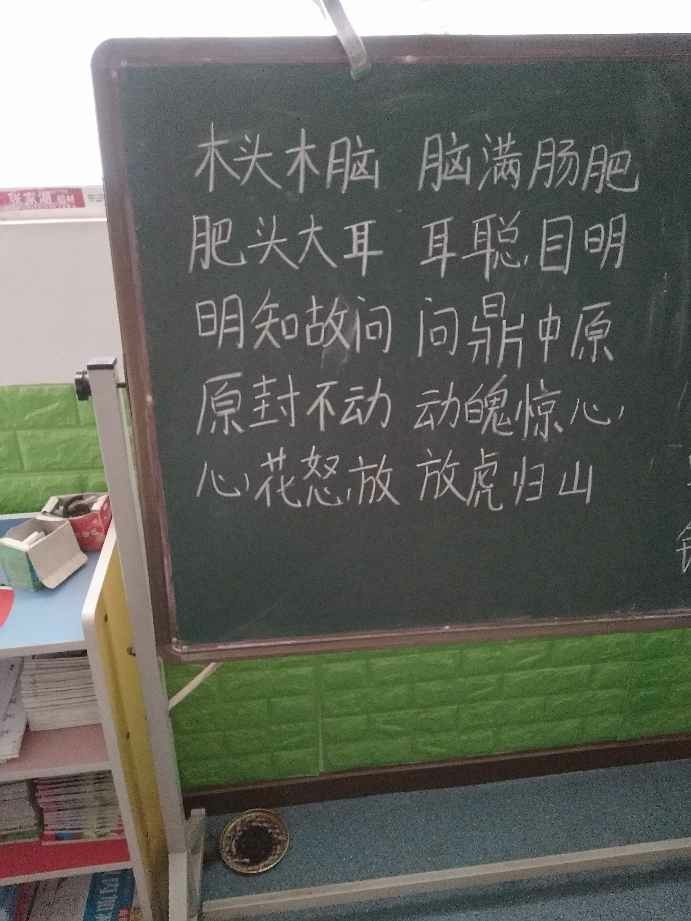 木头木脑 脑满肠肥
肥头大耳 耳聪目明
明知故问 问鼎中原
原封不动 动魄惊心
心花怒放 放虎归山